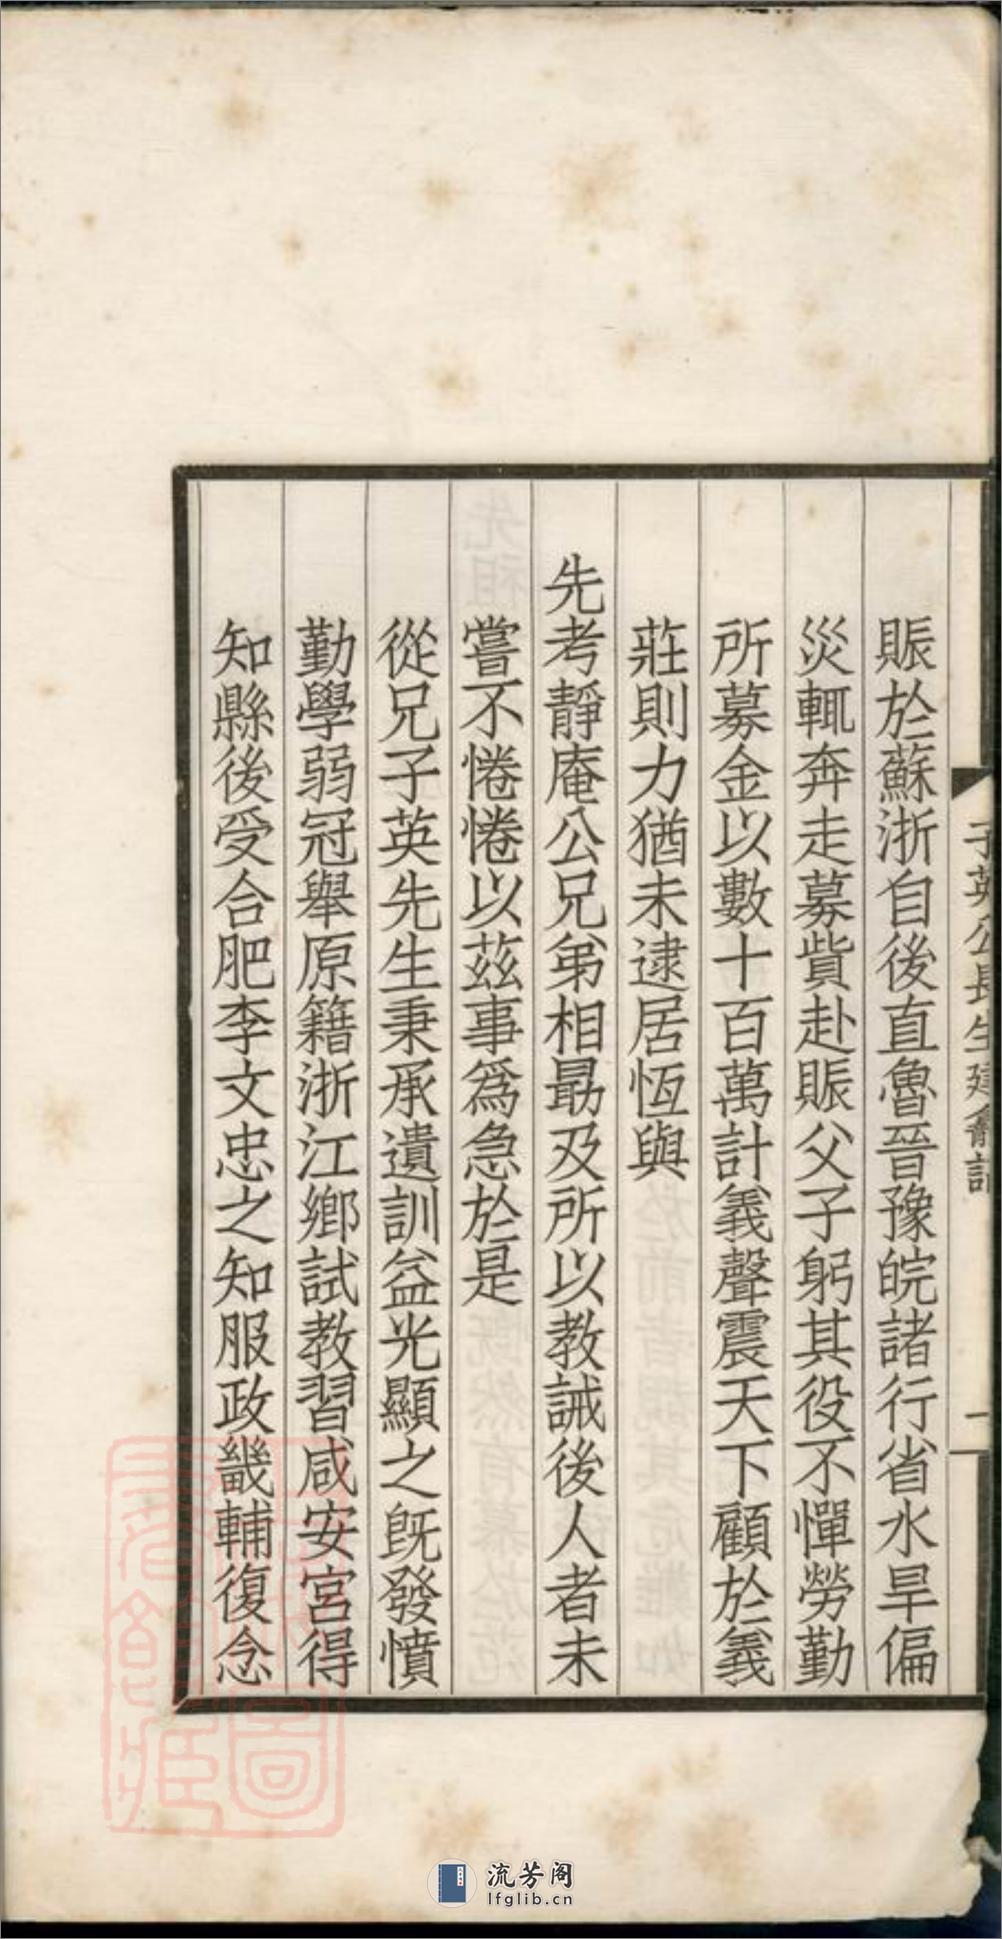 賑於蘇浙自後直魯晉豫皖諸行省水旱偏
災輒奔走募貲赴賑父子躬其役不憚勞勤
所募金以數十百萬計義聲震天下顧於義
莊則力猶未逮居恆與
先考靜庵公兄弟相勗及所以教誡後人者未
嘗不惓惓以茲事爲急於是
從兄子英先生秉承遺訓益光顯之旣發憤
勤學弱冠舉原籍浙江鄉試教習咸安宮得
知縣後受合肥李文忠之知服政畿輔復念
子英公長生
一
流芳阁
lfglib.cn